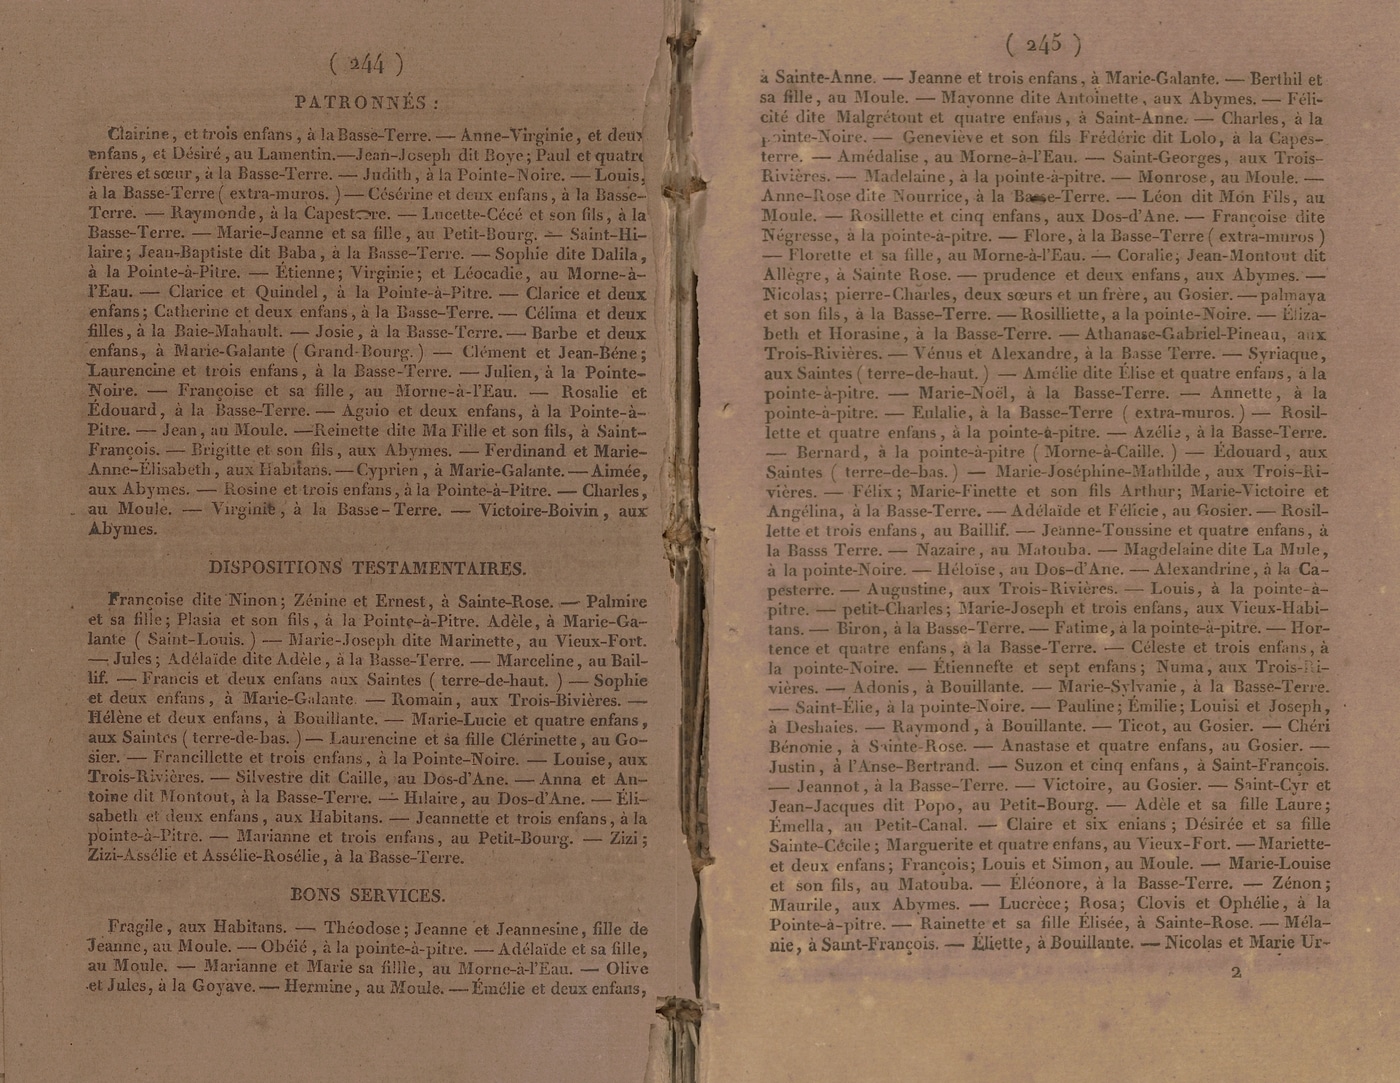 ( 244 )
PATRONNÉS :
Clairine, et trois enfans, à la Basse-Terre. — Anne-Virginie, et deux
enfans, et Désiré, au Lamentin.—Jean-Joseph dit Boye; Paul et quatre
frères et sœur, à la Basse-Terre. — Judith, à la Pointe-Noire. — Louis,
à la Basse-Terre ( extra-muros. ) — Césérine et deux enfans, à la Basse-
Terre. — Raymonde, à la Capesterre. — Lucette-Cécé et son fils, à la
Basse-Terre. — Marie-Jeanne et sa fille, au Petit-Bourg. — Saint-Hi-
laire; Jean-Baptiste dit Baba, à la Basse-Terre. — Sophie dite Dalila,
à la Pointe-à-Pitre. — Étienne; Virginie; et Léocadie, au Morne-à-
l'Eau. — Clarice et Quindel, à la Pointe-à-Pitre. — Clarice et deux
enfans; Catherine et deux enfans, à la Basse-Terre. — Célima et deux
filles, à la Baie-Mahault. — Josie, à la Basse-Terre. — Barbe et deux
enfans, à Marie-Galante ( Grand-Bourg. ) — Clément et Jean-Béne;
Laurencine et trois enfans, à la Basse-Terre. — Julien, à la Pointe-
Noire. — Françoise et sa fille, au Morne-à-l'Eau. — Rosalie et
Édouard, à la Basse-Terre. — Aguio et deux enfans, à la Pointe-à-
Pitre. — Jean, au Moule. —Reinette dite Ma Fille et son fils, à Saint-
François. — Brigitte et son fils, aux Abymes. — Ferdinand et Marie-
Anne-Élisabeth, aux Habitans. — Cyprien, à Marie-Galante. — Aimée,
aux Abymes. — Rosine et trois enfans, à la Pointe-à-Pitre. — Charles,
au Moule. — Virginie, à la Basse-Terre. — Victoire-Boivin, aux
Abymes.
DISPOSITIONS TESTAMENTAIRES.
Françoise dite Ninon; Zénine et Ernest, à Sainte-Rose. — Palmire
et sa fille; Plasia et son fils, à la Pointe-à-Pitre. Adèle, à Marie-Ga-
lante ( Saint-Louis. ) — Marie-Joseph dite Marinette, au Vieux-Fort.
— Jules; Adélaïde dite Adèle, à la Basse-Terre. — Marceline, au Bail-
lif. — Francis et deux enfans aux Saintes ( terre-de-haut. ) — Sophie
et deux enfans, à Marie-Galante — Romain, aux Trois-Bivières. —
Hélène et deux enfans, à Bouillante. — Marie-Lucie et quatre enfans,
aux Saintes ( terre-de-bas. ) — Laurencine et sa fille Clérinette, au Go-
sier. — Francillette et trois enfans, à la Pointe-Noire. — Louise, aux
Trois-Rivières. — Silvestre dit Caille, au Dos-d'Ane. — Anna et An-
toine dit Montout, à la Basse-Terre. — Hilaire, au Dos-d'Ane. — Éli-
sabeth et deux enfans, aux Habitans. — Jeannette et trois enfans, à la
pointe-à-Pitre. — Marianne et trois enfans, au Petit-Bourg. — Zizi;
Zizi-Assélie et Assélie-Rosélie, à la Basse-Terre.
BONS SERVICES.
Fragile, aux Habitans. — Théodose; Jeanne et Jeannesine, fille de
Jeanne, au Moule. — Obéié, à la pointe-à-pitre. — Adélaïde et sa fille,
au Moule. — Marianne et Marie sa fillle, au Morne-à-l'Eau. — Olive
et Jules, à la Goyave. — Hermine, au Moule. — Émélie et deux enfans,
( 245 )
a Sainte-Anne. — Jeanne et trois enfans, à Marie-Galante. — Berthil et
sa fille, au Moule. — Mayonne dite Antoinette, aux Abymes. — Féli-
cité dite Malgrétout et quatre enfans, à Saint-Anne. — Charles, à la
pointe-Noire. — Geneviève et son fils Frédéric dit Lolo, à la Capes-
terre. — Amédalise, au Morne-à-l'Eau. — Saint-Georges, aux Trois-
Rivières. — Madelaine, à la pointe-à-pitre. — Monrose, au Moule. —
Anne-Rose dite Nourrice, à la Basse-Terre. — Léon dit Mon Fils, au
Moule. — Rosillette et cinq enfans, aux Dos-d'Ane. — Françoise dite
Négresse, à la pointe-à-pitre. — Flore, à la Basse-Terre ( extra-muros )
— Florette et sa fille, au Morne-à-l'Eau. — Coralie; Jean-Montout dit
Allègre, à Sainte Rose. — prudence et deux enfans, aux Abymes. —
Nicolas; pierre-Charles, deux sœurs et un frère, au Gosier. — palmaya
et son fils, à la Basse-Terre. — Rosilliette, a la pointe-Noire. — Éliza-
beth et Horasine, à la Basse-Terre. — Athanase-Gabriel-Pineau, aux
Trois-Rivières. — Vénus et Alexandre, à la Basse Terre. — Syriaque,
aux Saintes ( terre-de-haut. ) — Amélie dite Élise et quatre enfans, à la
pointe-à-pitre. — Marie-Noël, à la Basse-Terre. — Annette, à la
pointe-à-pitre. — Eulalie, à la Basse-Terre ( extra-muros. ) — Rosil-
lette et quatre enfans, à la pointe-à-pitre. — Azélie, à la Basse-Terre.
— Bernard, à la pointe-à-pitre ( Morne-à-Caille. ) — Édouard, aux
Saintes ( terre-de-bas. ) — Marie-Joséphine-Mathilde, aux Trois-Ri-
vières. — Félix; Marie-Finette et son fils Arthur; Marie-Victoire et
Angélina, à la Basse-Terre. — Adélaïde et Félicie, au Gosier. — Rosil-
lette et trois enfans, au Baillif. — Jeanne-Toussine et quatre enfans, à
la Basss Terre. — Nazaire, au Matouba. — Magdelaine dite La Mule,
à la pointe-Noire. — Héloïse, au Dos-d'Ane. — Alexandrine, à la Ca-
pesterre. — Augustine, aux Trois-Rivières. — Louis, à la pointe-à-
pitre. — petit-Charles; Marie-Joseph et trois enfans, aux Vieux-Habi-
tans. — Biron, à la Basse-Terre. — Fatime, à la pointe-à-pitre. — Hor-
tence et quatre enfans, à la Basse-Terre. — Céleste et trois enfans, à
la pointe-Noire. — Étiennefte et sept enfans; Numa, aux Trois-Ri-
vières. — Adonis, à Bouillante. — Marie-Sylvanie, à la Basse-Terre.
— Saint-Élie, à la pointe-Noire. — Pauline; Émilie; Louisi et Joseph,
à Deshaies. — Raymond, à Bouillante. — Ticot, au Gosier. — Chéri
Bénonie, à Sainte-Rose. — Anastase et quatre enfans, au Gosier. —
Justin, à l'Anse-Bertrand. — Suzon et cinq enfans, à Saint-François.
— Jeannot, à la Basse-Terre. — Victoire, au Gosier. — Saint-Cyr et
Jean-Jacques dit Popo, au Petit-Bourg. — Adèle et sa fille Laure;
Émella, au Petit-Canal. — Claire et six enians; Désirée et sa fille
Sainte-Cécile; Marguerite et quatre enfans, au Vieux-Fort. — Mariette-
et deux enfans; François; Louis et Simon, au Moule. — Marie-Louise
et son fils, au Matouba. — Éléonore, à la Basse-Terre. — Zénon;
Maurile, aux Abymes. — Lucrèce; Rosa; Clovis et Ophélie, à la
Pointe-à-pitre. — Rainette et sa fille Élisée, à Sainte-Rose. — Méla-
nie, à Saint-François. — Éliette, à Bouillante. — Nicolas et Marie Ur-
2